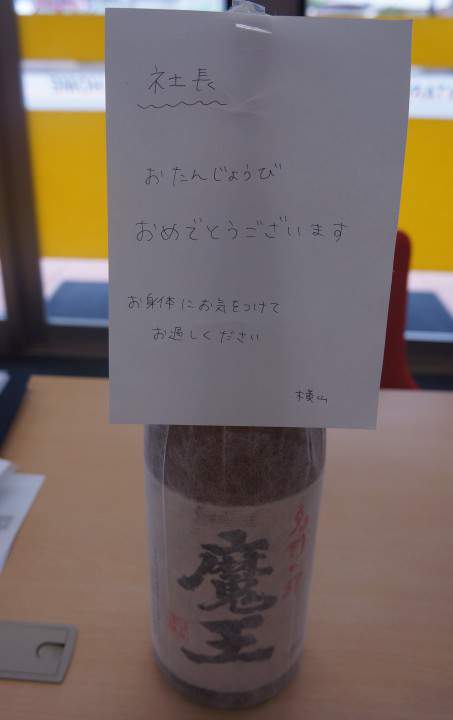 社長
おたんじょうび
おめでとうございます
お身体にお気をつけて
お過しください
横山
魔王